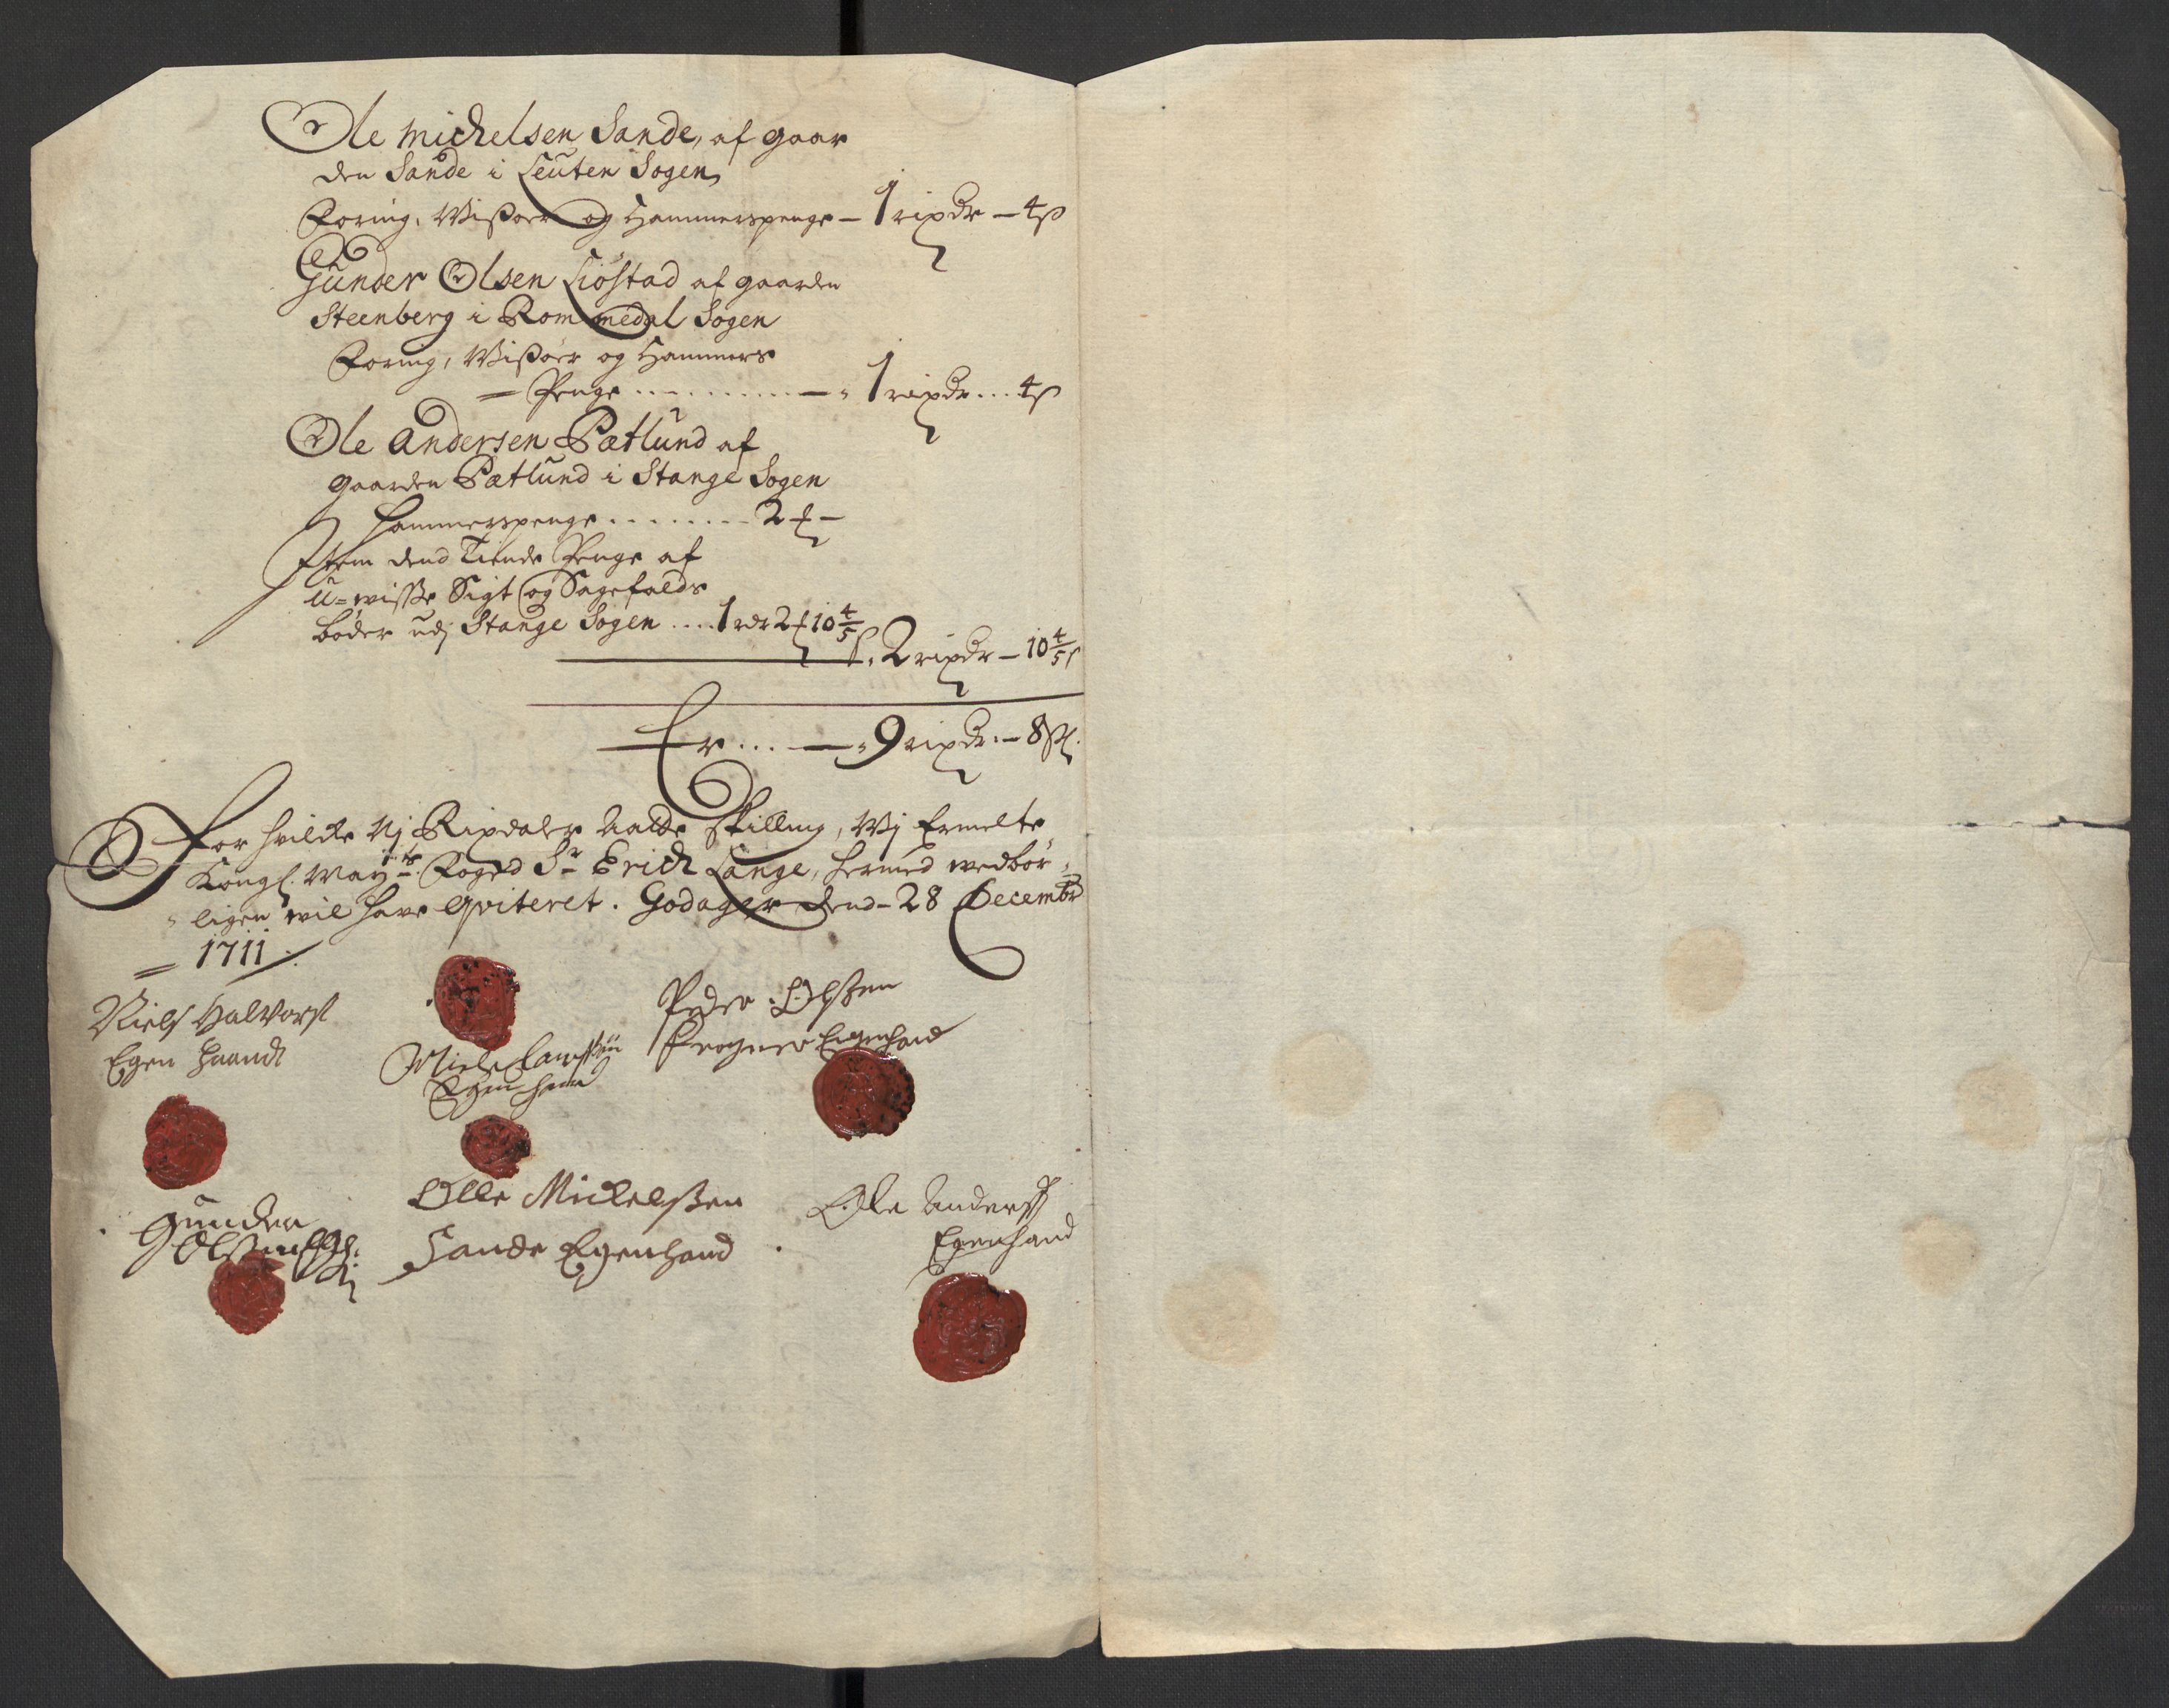 Ole Michelsen Sande, af gaar
den Sande i Leuten Sogen
Foring, Wißøer og Hammerspenge — 1 rixdr — 4 ß
Gunder Olsen Liøstad af gaarden
Steenberg i Rommedal Sogen
Foring, Wißøer og Hammers
= Penge ......... — 1 rixdr ... 4 ß
Ole Andersen Pætlund af
gaarden Pætlund i Stange Sogen
Hammerspenge ........ 2 —
Item dend Tiende Penge af
u=wisse Sigt og Sagefalds
bøder udj Stange Sogen .... 1 rdr 2 10 4/5
2 rixdr — 10 4/5 ß
Er ... — 9 rixdr — 8 ß.
For hvilcke Nj Rixdaler Aatte skilling, Wj Ermelte
Kongl. Mayts. Foged Sr Erich Lange, hermed wedbør-
ligen wil have qviteret. Godager dend 28 Decembr
= 1711.
Niels Halvors
Egen Haandt
Niels
Egen hand
Peder Olssen
Egenhand
Gunder
Olssen
Olle Mickelssen
Sande Egenhand
Ole Anders
Egenhand